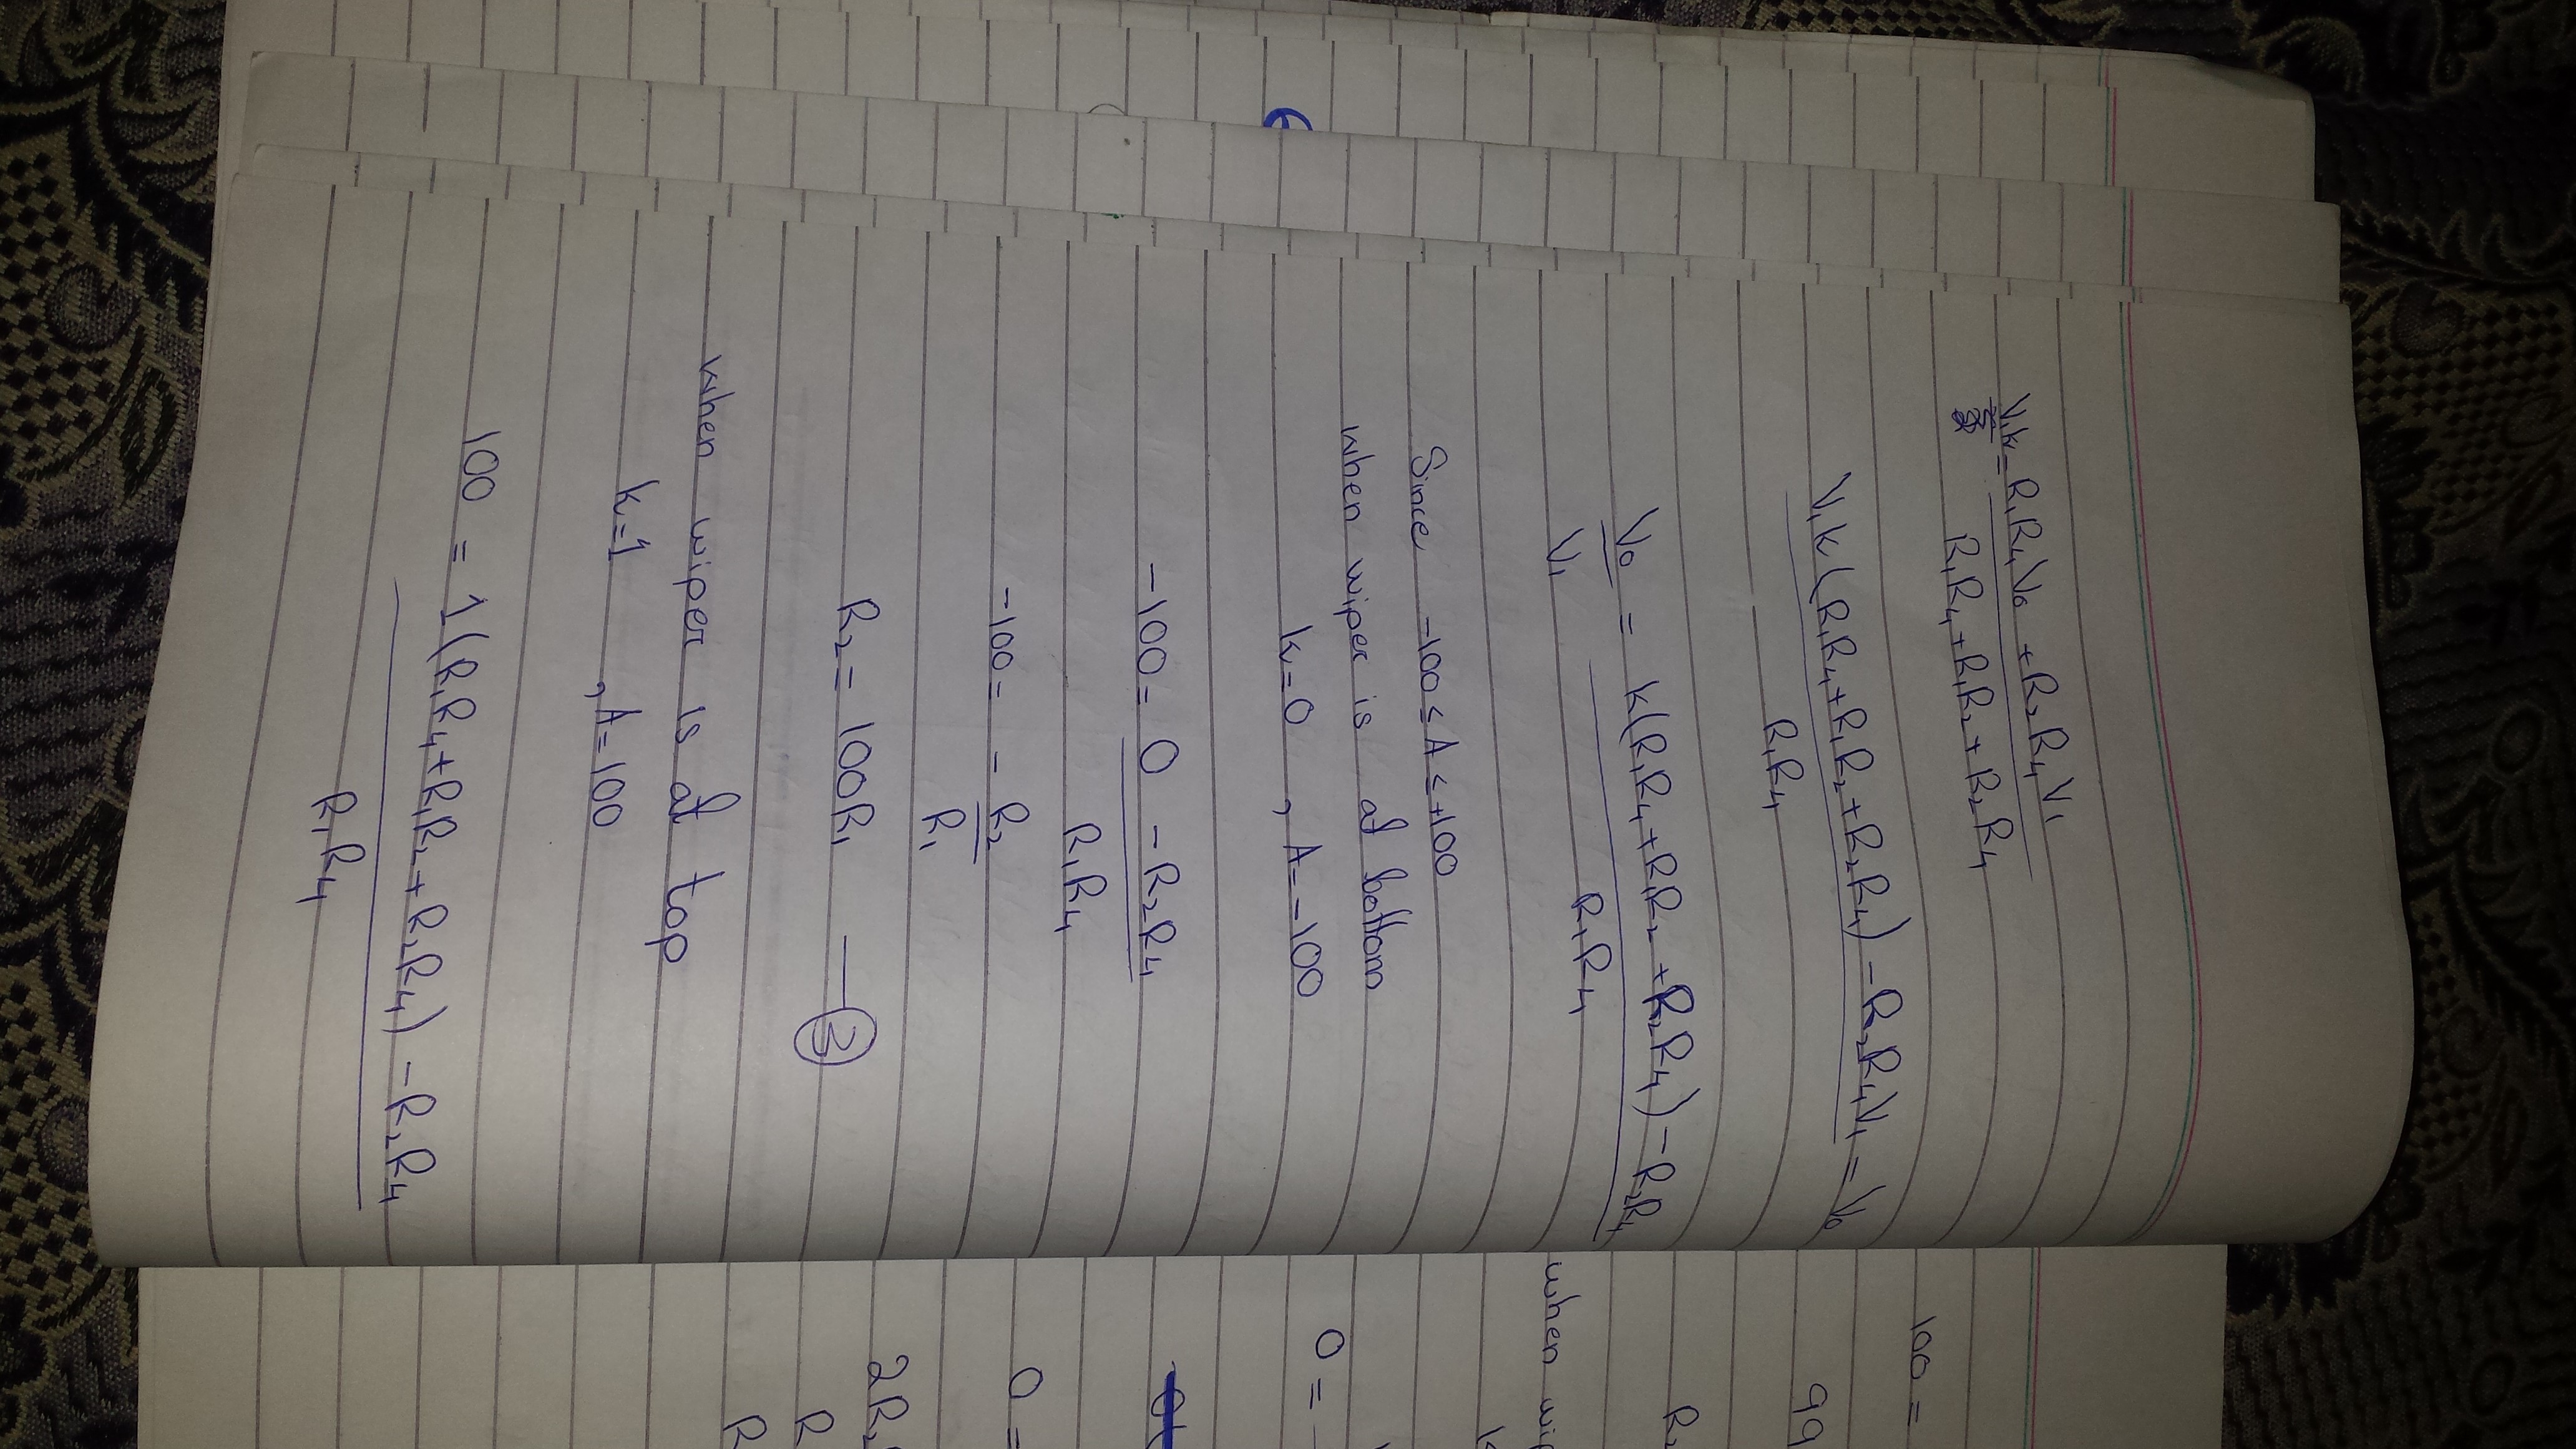 V₁k = R₁R₄V₀ + R₂R₄V₁
R₁R₄ + R₁R₂ + R₂R₄
V₁k (R₁R₄ + R₁R₂ + R₂R₄) - R₂R₄V₁ = V₀
R₁R₄
V₀ = k(R₁R₄ + R₁R₂ + R₂R₄) - R₂R₄
V₁ R₁R₄
Since -100 ≤ A ≤ +100
when wiper is at bottom
k=0 , A=-100
-100 = 0 - R₂R₄
R₁R₄
-100 = - R₂
R₁
R₂ = 100R₁ — 3
when wiper is at top
k=1 , A=100
100 = 1(R₁R₄ + R₁R₂ + R₂R₄) - R₂R₄
R₁R₄
100 =
99
R₂
when
0 =
0 =
2R₂
R
R